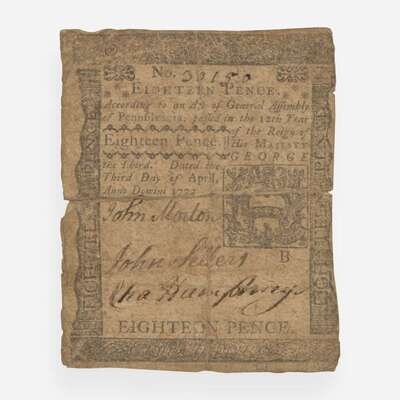 No. 30150
EIGHTEEN PENCE.
According to an Act of General Assembly
of Pennsylvania, passed in the 12th Year
of the Reign of
Eighteen Pence. His MAJESTY
GEORGE
the Third. Dated the
Third Day of April,
Anno Domini 1772
John Morton
John Sellers
B
Cha Humphreys
EIGHTEEN PENCE.